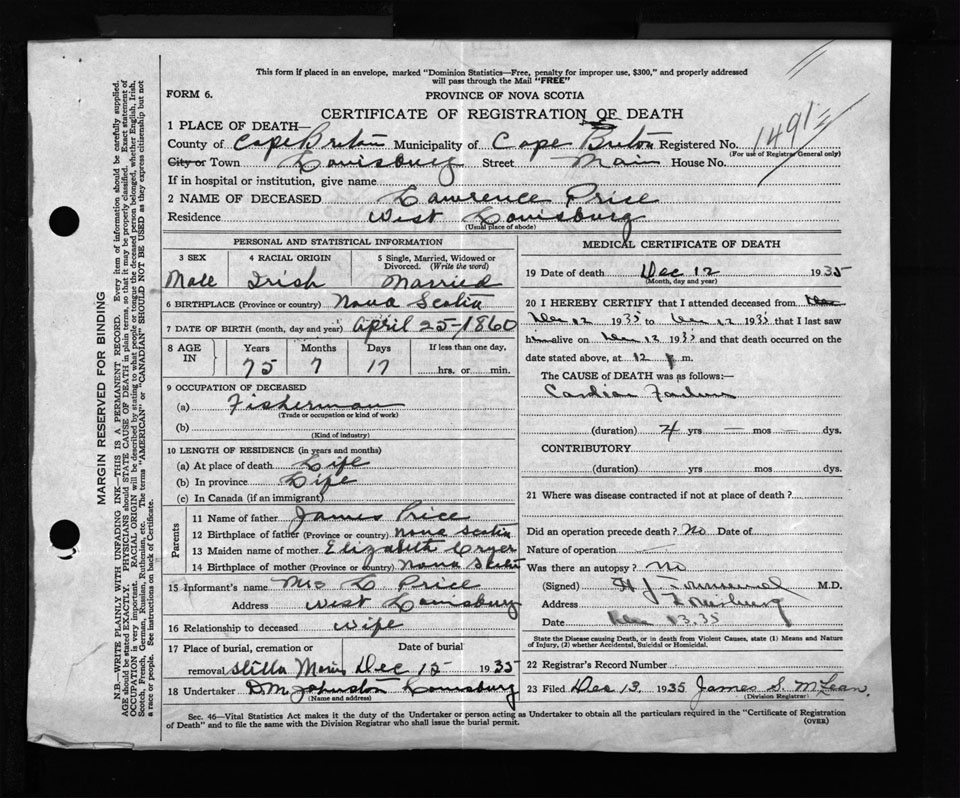 This form if placed in an envelope, marked "Dominion Statistics—Free, penalty for improper use, $300," and properly addressed
will pass through the Mail "FREE"
FORM 6.
PROVINCE OF NOVA SCOTIA
CERTIFICATE OF REGISTRATION OF DEATH
1 PLACE OF DEATH—
County of Cape Breton Municipality of Cape Breton Registered No. 1491
(For use of Registrar General only)
City or Town Louisburg Street Main House No.
If in hospital or institution, give name
2 NAME OF DECEASED Lawrence Price
Residence West Louisburg
(Usual place of abode)
PERSONAL AND STATISTICAL INFORMATION
3 SEX 4 RACIAL ORIGIN 5 Single, Married, Widowed or
Divorced. (Write the word)
Male Irish Married
6 BIRTHPLACE (Province or country) Nova Scotia
7 DATE OF BIRTH (month, day and year) April 25-1860
8 AGE IN Years Months Days If less than one day,
75 7 17 hrs. or min.
9 OCCUPATION OF DECEASED
(a) Fisherman
(Trade or occupation or kind of work)
(b)
(Kind of industry)
10 LENGTH OF RESIDENCE (in years and months)
(a) At place of death Life
(b) In province Life
(c) In Canada (if an immigrant)
Parents
11 Name of father James Price
12 Birthplace of father (Province or country) Nova Scotia
13 Maiden name of mother Elizabeth Cryer
14 Birthplace of mother (Province or country) Nova Scotia
15 Informant's name Mrs L Price
Address West Louisburg
16 Relationship to deceased Wife
17 Place of burial, cremation or Date of burial
removal Stilla Maris Dec 15 1935
18 Undertaker D.M. Johnston Louisburg
(Name and address)
MEDICAL CERTIFICATE OF DEATH
19 Date of death Dec 12 1935
(Month, day and year)
20 I HEREBY CERTIFY that I attended deceased from Dec
Dec 12 1935 to Dec 12 1935 that I last saw
him alive on Dec 12 1935 and that death occurred on the
date stated above, at 12 p m.
The CAUSE of DEATH was as follows:—
Cardiac Failure
(duration) 4 yrs — mos — dys.
CONTRIBUTORY
(duration) yrs mos dys.
21 Where was disease contracted if not at place of death?
Did an operation precede death? No Date of
Nature of operation —
Was there an autopsy? No
(Signed) H J M.D.
Address Louisburg
Date Dec 13.35
State the Disease causing Death, or in death from Violent Causes, state (1) Means and Nature
of Injury, (2) whether Accidental, Suicidal or Homicidal.
22 Registrar's Record Number
23 Filed Dec 13 1935 James S. McLean.
(Division Registrar)
Sec. 46—Vital Statistics Act makes it the duty of the Undertaker or person acting as Undertaker to obtain all the particulars required in the "Certificate of Registration
of Death" and to file the same with the Division Registrar who shall issue the burial permit.
(OVER)
MARGIN RESERVED FOR BINDING
N.B.—WRITE PLAINLY WITH UNFADING INK—THIS IS A PERMANENT RECORD. Every item of information should be carefully supplied.
AGE should be stated EXACTLY. PHYSICIANS should STATE CAUSE OF DEATH in plain terms, so that it may be properly classified. Exact statement of
OCCUPATION is very important. RACIAL ORIGIN will be described by stating to what people or tongue the deceased person belonged, whether English, Irish,
Scotch, French, German, Russian, Ruthenian, etc. The terms "AMERICAN" or "CANADIAN" SHOULD NOT BE USED as they express citizenship but not
a race or people. See instructions on back of Certificate.